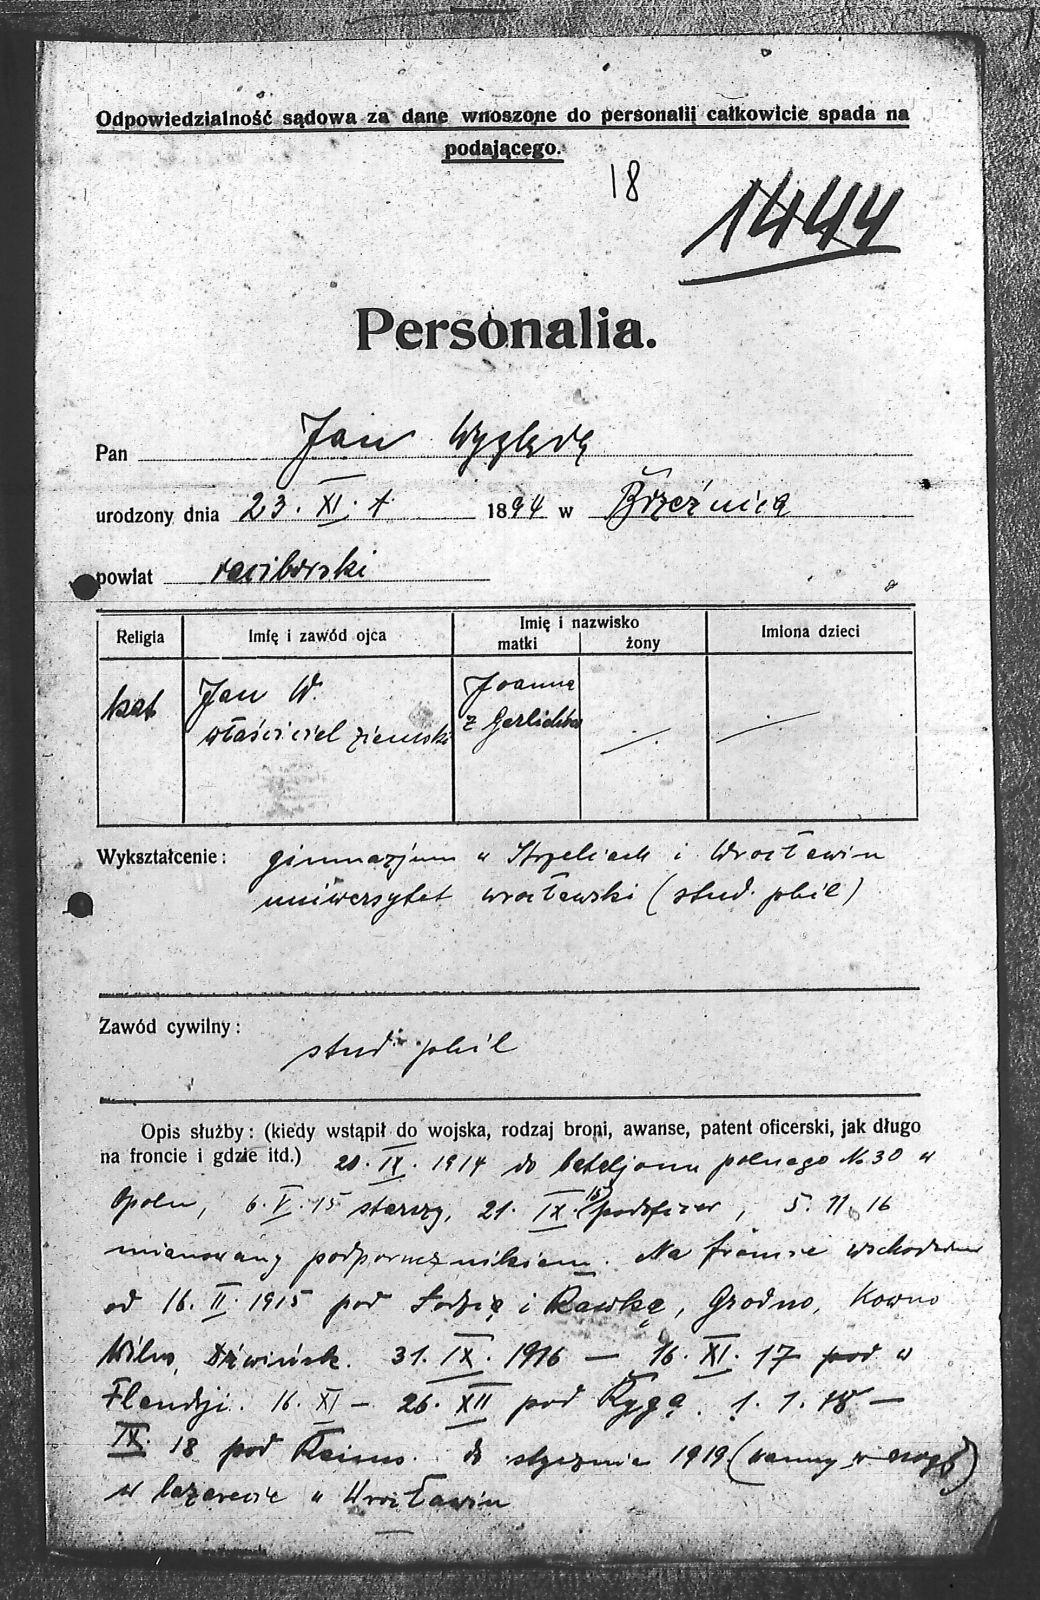 Odpowiedzialność sądowa za dane wnoszone do personalii całkowicie spada na
podającego.
18
1444
Personalia.
Pan Jan Wyglądą
urodzony dnia 23. XI. 1894 w Brzeźnicą
powiat raciborski
Religia Imię i zawód ojca Imię i nazwisko Imiona dzieci
matki żony
kat Jan W. Joanna
właściciel ziemski z Gerlichów
Wykształcenie: gimnazjum w Strzelcach i Wrocławiu
uniwersytet wrocławski (stud. phil)
Zawód cywilny:
stud. phil
Opis służby: (kiedy wstąpił do wojska, rodzaj broni, awanse, patent oficerski, jak długo
na froncie i gdzie itd.) 20. IX. 1914 do bataljonu polnego No. 30 w
Opolu, 6. V. 15 starszy, 21. IX. 15 podoficer, 5. 11. 16
mianowany podporucznikiem. Na froncie wschodnim
od 16. II. 1915 pod Łodzią i Rawką, Grodno, Kowno
Wilno, Dźwińsk. 31. IX. 1916 — 16. XI. 17 pod w
Flandji. 16. XI — 26. XII pod Rygą. 1. 1. 18 —
IX. 18 pod Reims. do stycznia 1919 (ranny w nogę)
w lazarecie w Wrocławiu